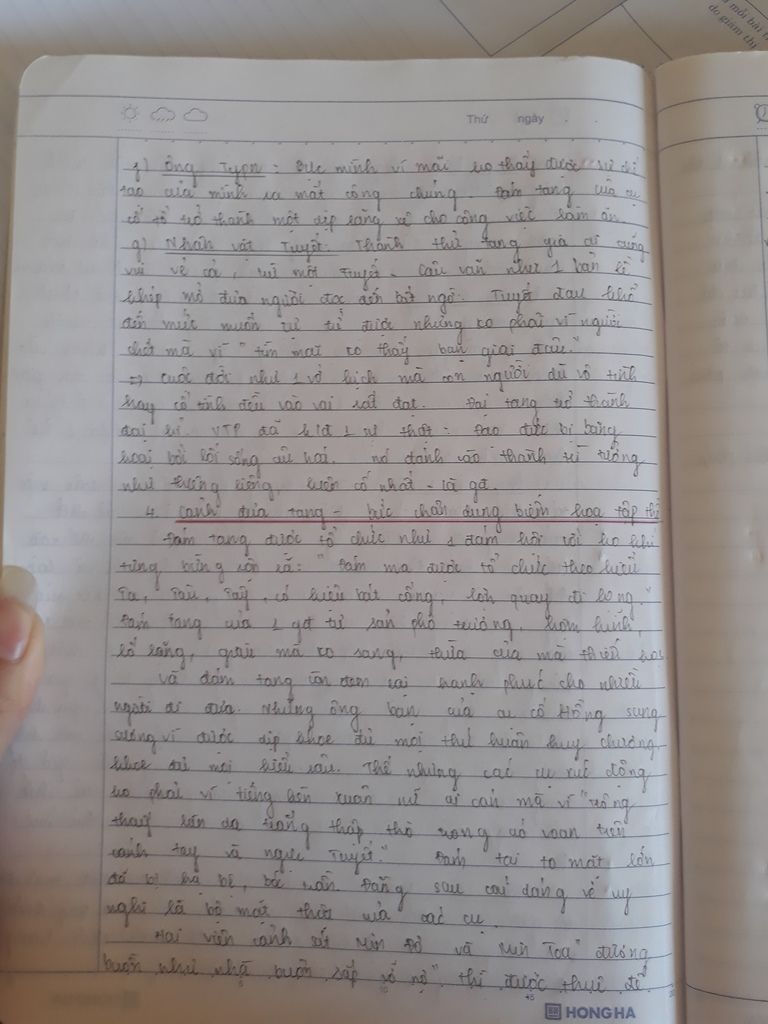 mỗi bài t
do giám thị
Thứ ngày
f) Ông Typn: Bực mình vì mãi ko thấy được sự chế
tạo của mình ra mắt công chúng. Đám tang của cụ
cố tổ trở thành một dịp lăng xê cho công việc làm ăn.
g) Nhân vật Tuyết: Thành thử tang gia ai cũng
vui vẻ cả, trừ một Tuyết. Câu văn như 1 bản lề
khép mở đưa người đọc đến bất ngờ. Tuyết đau khổ
đến mức muốn tự tử được nhưng ko phải vì người
chết mà vì "tìm mãi ko thấy bạn giai đâu."
=> cuộc đời như 1 vở kịch mà con người dù vô tình
hay cố tình đều vào vai rất đạt. Đại tang trở thành
đại hỉ. VTP đã 1 sự thật: Đạo đức bị băng
hoại bởi lối sống cũ hai. nó đánh vào thành trì tưởng
như thiêng liêng, kiên cố nhất - là gđ.
4. Cảnh đưa tang - bức chân dung biếm họa tập thể
Đám tang được tổ chức như 1 đám hội với ko khí
tưng bừng rộn rã: "Đám ma được tổ chức theo kiểu
Ta, Tàu, Tây, có kiệu bát cống, lợn quay đi lọng."
Đám tang của 1 gđ tư sản phô trương, hợm hĩnh,
lố lăng, giàu mà ko sang, thừa của mà thiếu
Và đám tang còn đem lại hạnh phúc cho nhiều
người đi đưa. Những ông bạn của cụ cố Hồng sung
sướng vì được dịp khoe đủ mọi thứ huân huy chương,
khoe đủ mọi kiểu râu. Thế nhưng các cụ xúc động
ko phải vì tiếng kèn xuân nữ ai oán mà vì "trông
thấy làn da trắng thập thò trong áo voan trên
cánh tay và ngực Tuyết." Đám tai to mặt lớn
đó bị bẩn. Đằng sau cái dáng vẻ uy
nghi là bộ mặt thật của các cụ.
Hai viên cảnh sát Min Đơ và Min Toa "đương
buồn như nhà buôn sắp vỡ nợ" thì được thuê để
HONG HA